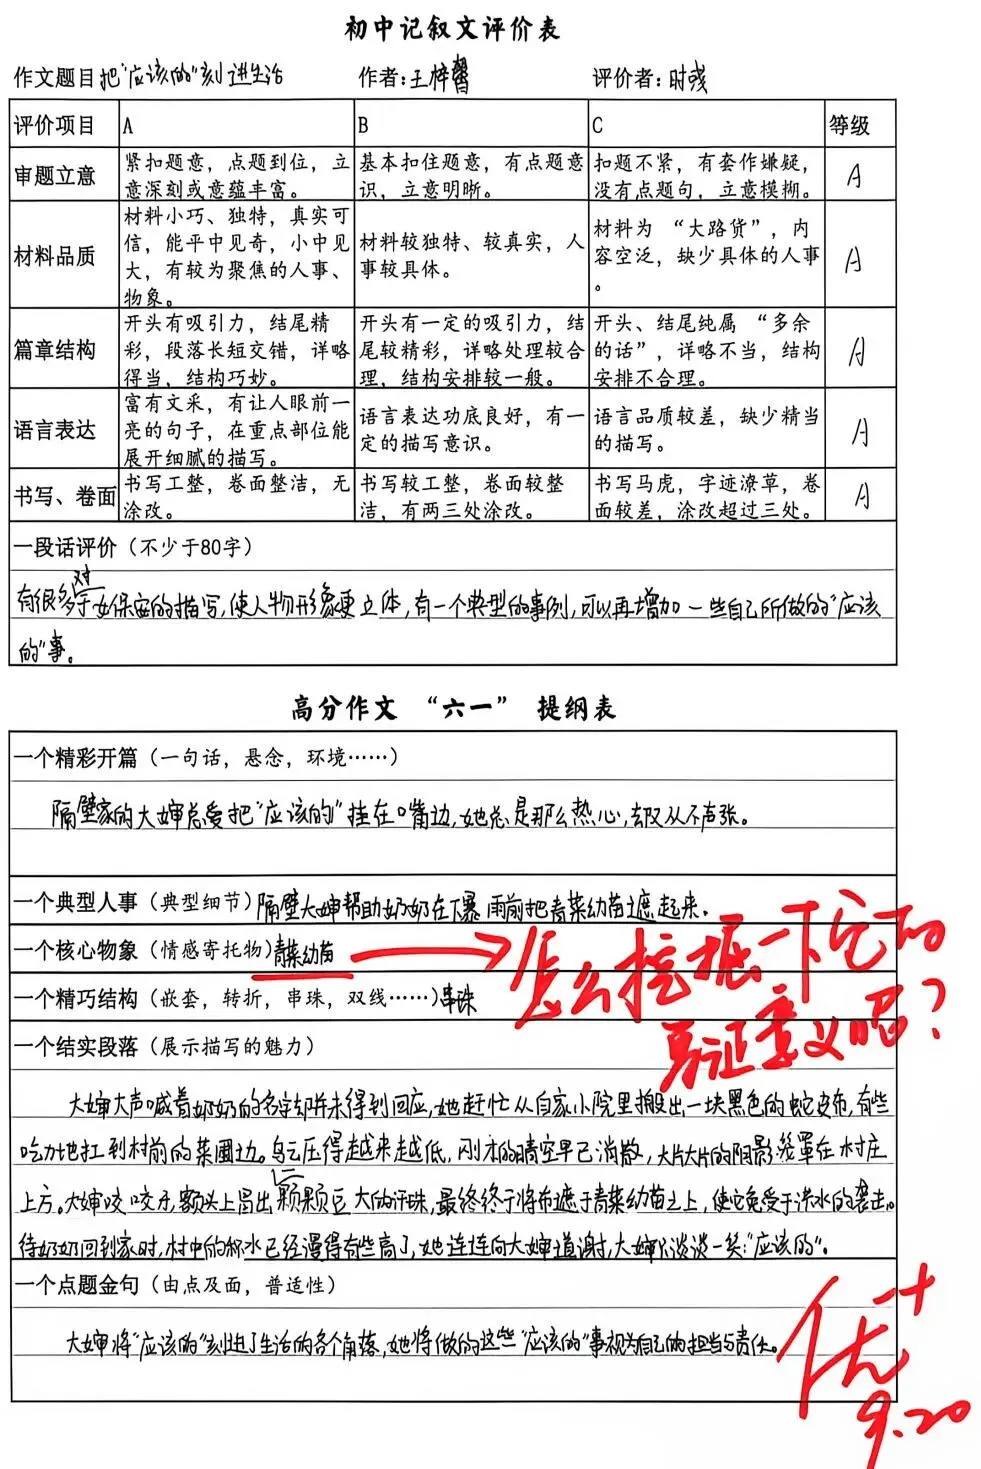 初中记叙文评价表
作文题目 把“应该的”刻进生活 作者:王梓馨 评价者:时彧
评价项目 A B C 等级
审题立意 紧扣题意,点题到位,立意深刻或意蕴丰富。 基本扣住题意,有点题意识,立意明晰。 扣题不紧,有套作嫌疑,没有点题句,立意模糊。 A
材料品质 材料小巧、独特,真实可信,能平中见奇,小中见大,有较为聚焦的人事、物象。 材料较独特、较真实,人事较具体。 材料为“大路货”,内容空泛,缺少具体的人事。 A
篇章结构 开头有吸引力,结尾精彩,段落长短交错,详略得当,结构巧妙。 开头有一定的吸引力,结尾较精彩,详略处理较合理,结构安排较一般。 开头、结尾纯属“多余的话”,详略不当,结构安排不合理。 A
语言表达 富有文采,有让人眼前一亮的句子,在重点部位能展开细腻的描写。 语言表达功底良好,有一定的描写意识。 语言品质较差,缺少精当的描写。 A
书写、卷面 书写工整,卷面整洁,无涂改。 书写较工整,卷面较整洁,有两三处涂改。 书写马虎,字迹潦草,卷面较差,涂改超过三处。 A
一段话评价(不少于80字)
有很多对于女保安的描写,使人物形象更立体,有一个典型的事例,可以再增加一些自己所做的“应该
的”事。
高分作文 “六一” 提纲表
一个精彩开篇(一句话,悬念,环境……)
隔壁家的大婶总爱把“应该的”挂在口嘴边,她总是那么热心,却又从不声张。
一个典型人事(典型细节)隔壁大婶帮助奶奶在下暴雨前把青菜幼苗遮起来.
一个核心物象(情感寄托物)青菜幼苗
怎么挖掘一下它的
一个精巧结构(嵌套,转折,串珠,双线……)串珠
意义呢?
一个结实段落(展示描写的魅力)
大婶大声喊着奶奶的名字却并未得到回应,她赶忙从自家小院里搬出一块黑色的蛇皮布,有些
吃力地扛到村前的菜圃边。乌云压得越来越低,刚才的晴空早已消散,大片大片的阴影笼罩在村庄
上方。大婶咬咬牙,额头上冒出一颗颗豆大的汗珠,最终终于将布遮于青菜幼苗之上,使它免受于洪水的袭击。
待奶奶回到家时,村中的积水已经漫得有些高了,她连连向大婶道谢,大婶只淡淡一笑:“应该的”。
一个点题金句(由点及面,普适性)
大婶将“应该的”刻进了生活的各个角落,她将做的这些“应该的”事视为自己的担当与责任。
优+
9.20